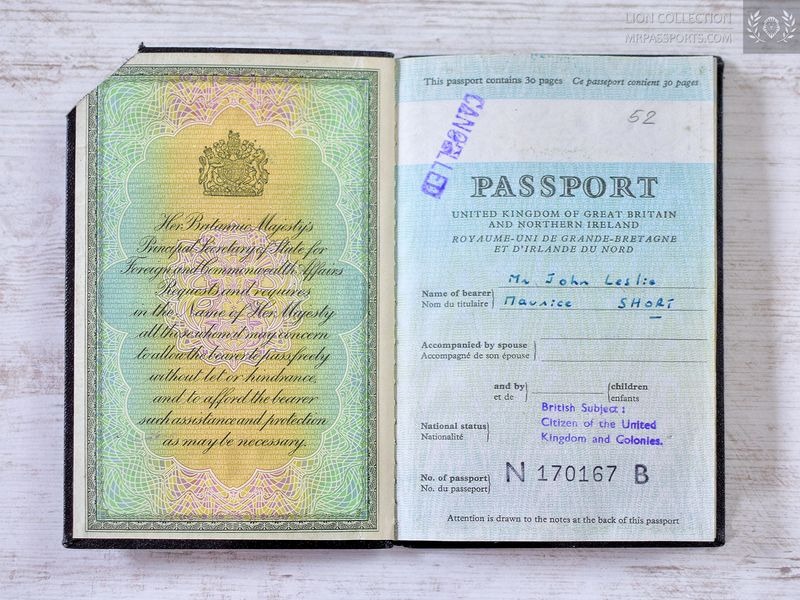 LION COLLECTION
MRPASSPORTS.COM
Her Britannic Majesty's
Principal Secretary of State for
Foreign and Commonwealth Affairs
Requests and requires
in the Name of Her Majesty
all those whom it may concern
to allow the bearer to pass freely
without let or hindrance,
and to afford the bearer
such assistance and protection
as may be necessary.
This passport contains 30 pages Ce passeport contient 30 pages
52
CANCELLED
PASSPORT
UNITED KINGDOM OF GREAT BRITAIN
AND NORTHERN IRELAND
ROYAUME-UNI DE GRANDE-BRETAGNE
ET D'IRLANDE DU NORD
Mr John Leslie
Name of bearer
Nom du titulaire
Maurice SHORT
Accompanied by spouse
Accompagné de son épouse
and by
et de
(children
(enfants
British Subject:
Citizen of the United
Kingdom and Colonies.
National status
Nationalité
No. of passport
No. du passeport
N 170167 B
Attention is drawn to the notes at the back of this passport